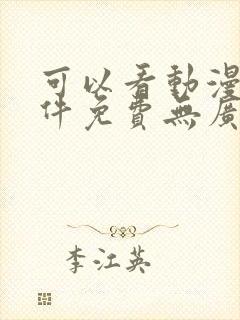 可以看動漫
件免費無廣
李江英